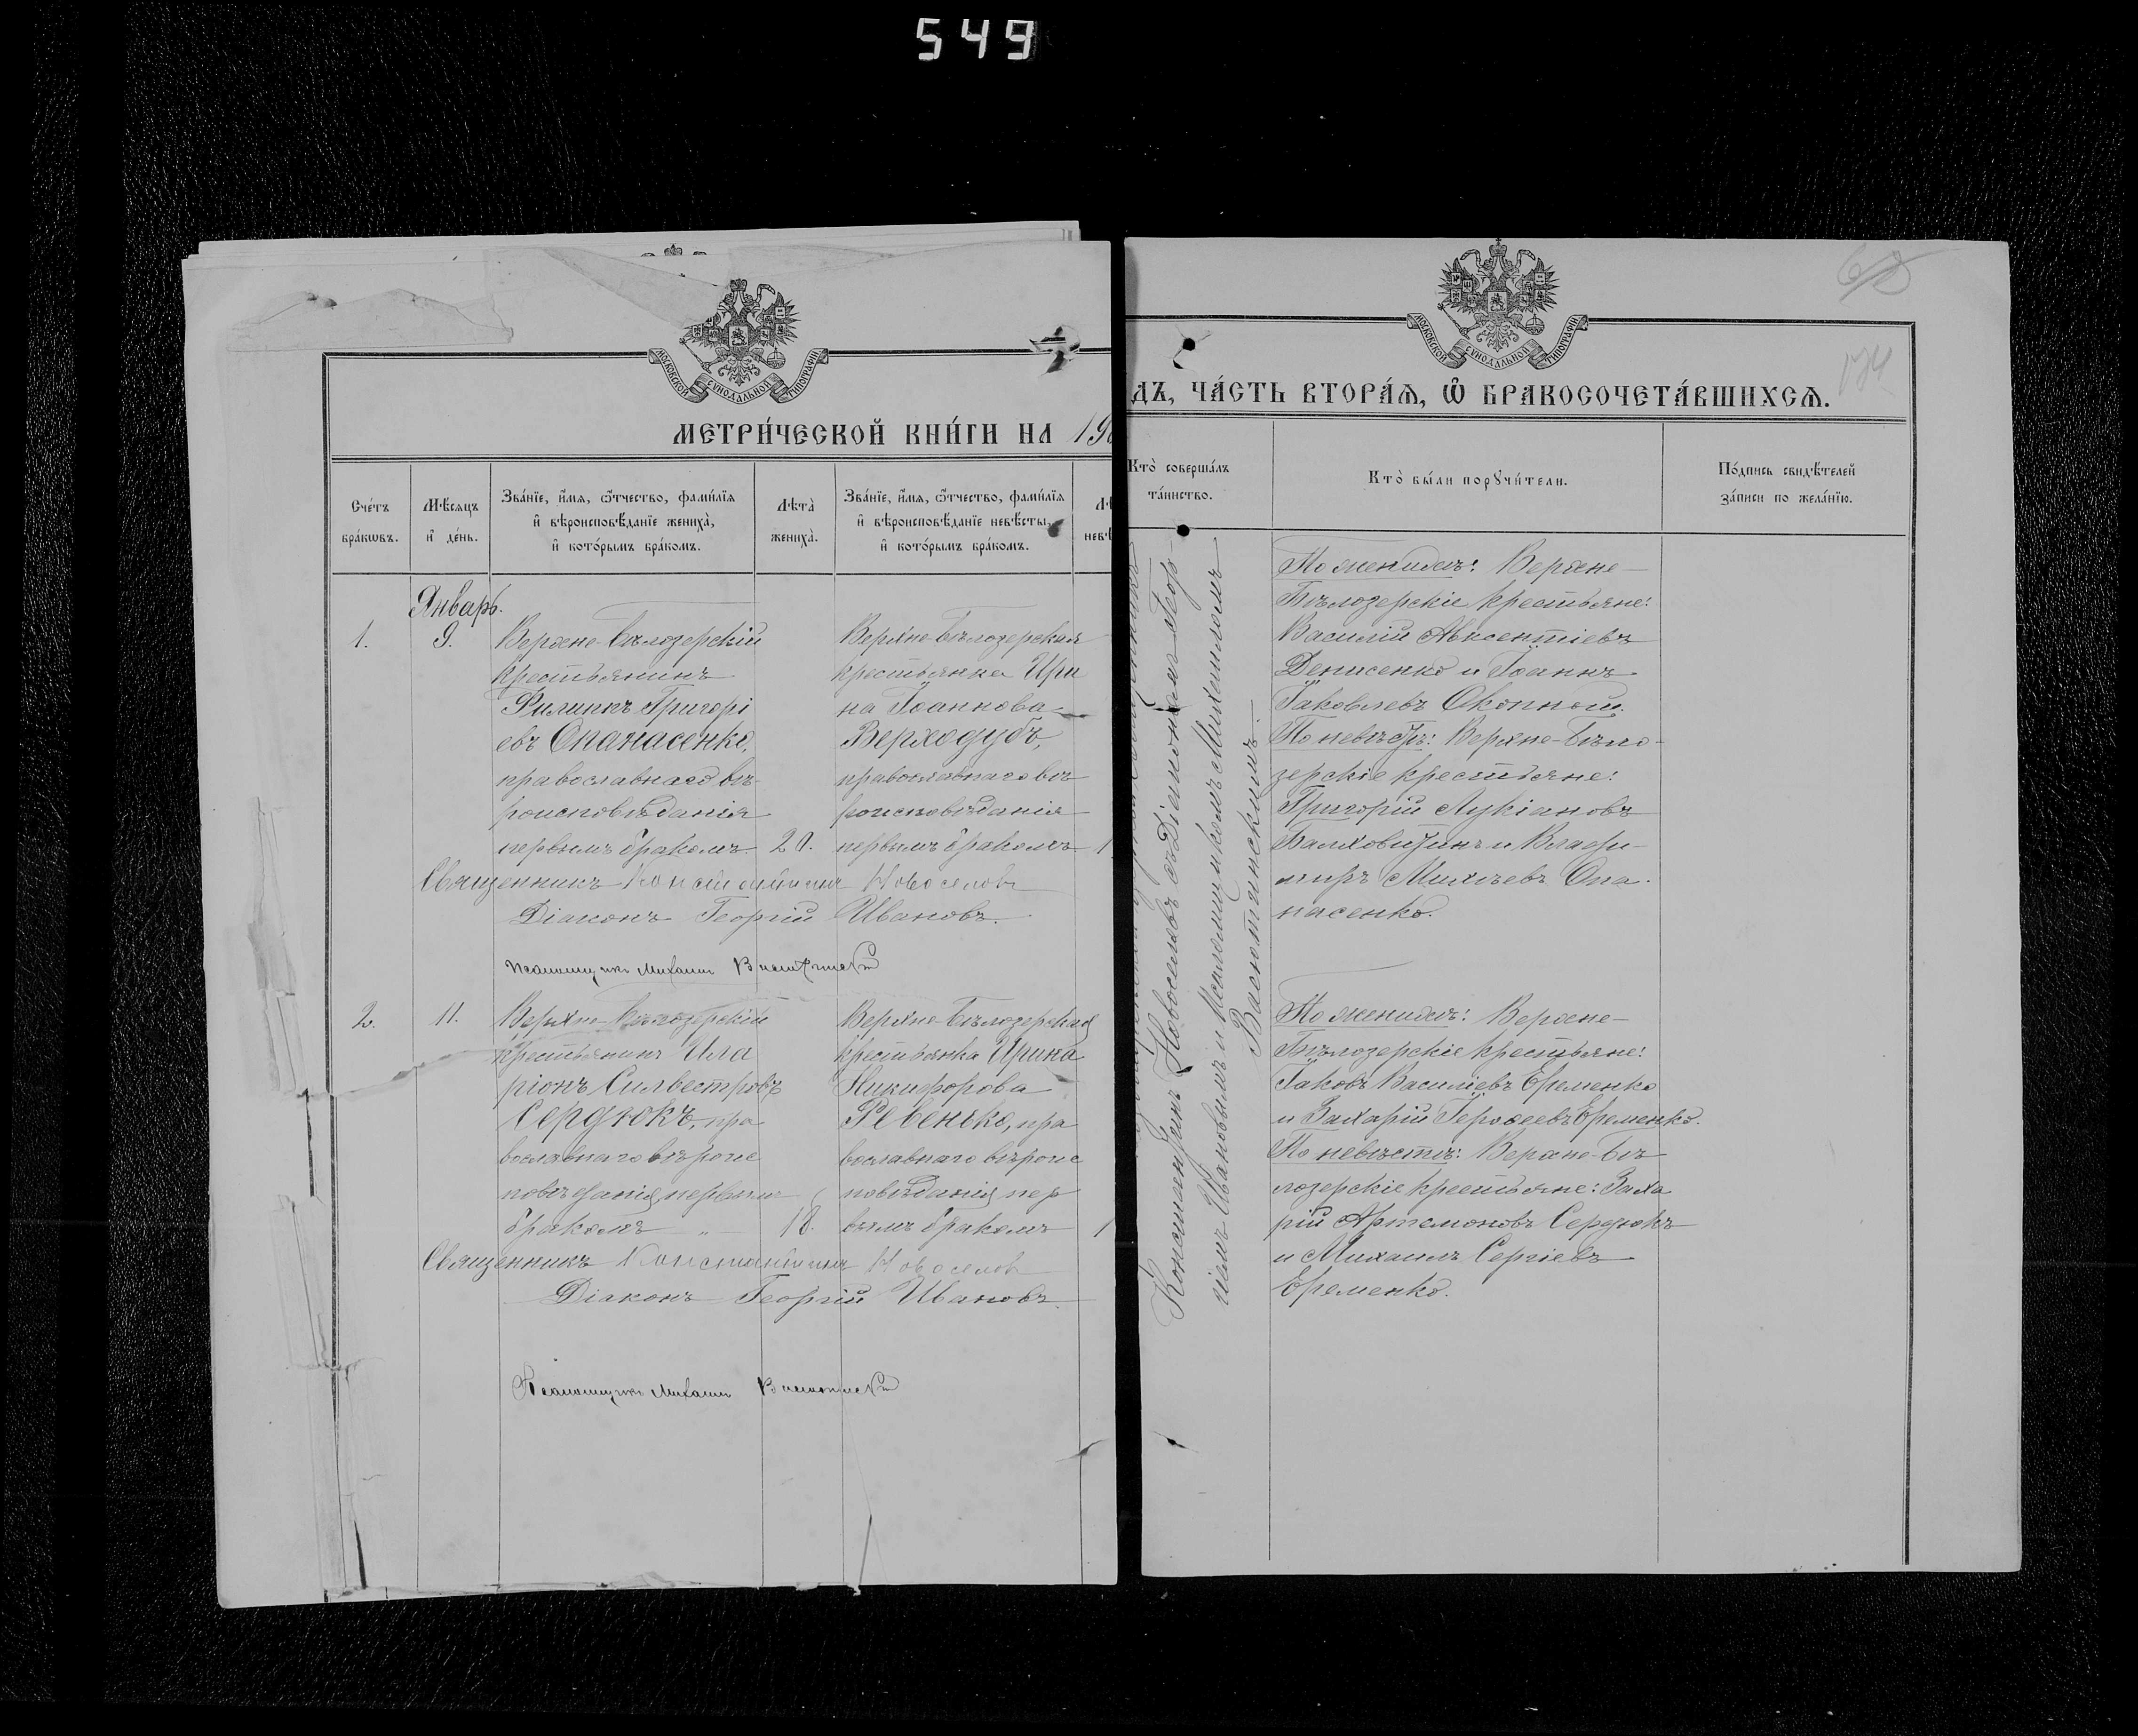 549
МОСКОВСКОЙ СѴНОДАЛЬНОЙ ТИПОГРАФІИ
МЕТРИ́ЧЕСКОЙ КНИ́ГИ НА 19
Сче́тъ бра́кωвъ.
Мѣ́сяцъ и҆ де́нь.
Зва́нїе, и҆́мя, ѻ҆́тчество, фами́лїя
и҆ вѣроисповѣ́данїе жениха̀,
и҆ кото́рымъ бра́комъ.
Лѣта̀ жениха̀.
Зва́нїе, и҆́мя, ѻ҆́тчество, фами́лїя
и҆ вѣроисповѣ́данїе невѣ́сты,
и҆ кото́рымъ бра́комъ.
Январь.
1.
9.
Верхне-Бѣлозерскій
крестьянинъ
Филиппъ Григорі
евъ Опанасенко,
православнаго вѣ-
роисповѣданія
первымъ бракомъ.
20.
Верхне-Бѣлозерская
крестьянка Ири
на Іоаннова
Верходубъ,
православнаго вѣ
роисповѣданія
первымъ бракомъ
1
Священникъ Константинъ Новоселовъ
Діаконъ Георгій Ивановъ.
Псаломщикъ Михаилъ
2.
11.
Верхне-Бѣлозерскій
крестьянинъ Ила
ріонъ Силвестровъ
Сердюкъ, пра
вославнаго вѣроис
повѣданія первымъ
бракомъ "
18.
Верхне-Бѣлозерская
крестьянка Ирина
Никифорова
Ревенько, пра
вославнаго вѣроис
повѣданія пер
вымъ бракомъ
1
Священникъ Константинъ Новоселовъ
Діаконъ Георгій Ивановъ.
Псаломщикъ Михаилъ
МОСКОВСКОЙ СѴНОДАЛЬНОЙ ТИПОГРАФІИ
174
ДЪ, ЧА́СТЬ ВТОРА́Я, Ѡ҆ БРАКОСОЧЕТА́ВШИХСЯ.
Кто̀ соверша́лъ
та́инство.
Кто̀ бы́ли порꙋчи́тели.
По́дпись свидѣ́телей
за́писи по жела́нїю.
Константинъ Новоселовъ съ Діакономъ Геор-
гіемъ Ивановымъ и Псаломщикомъ Михаиломъ
По женихѣ: Верхне-
Бѣлозерскіе крестьяне:
Василій Авксентіевъ
Денисенко и Іоаннъ
Іаковлевъ Окопный.
По невѣстѣ: Верхне-Бѣло-
зерскіе крестьяне:
Григорій Лукіановъ
и Влади-
міръ Михѣевъ Опа-
насенко.
По женихѣ: Верхне-
Бѣлозерскіе крестьяне:
Іаковъ Василіевъ Еременко
и Захарій Еременко.
По невѣстѣ: Верхне-Бѣ
лозерскіе крестьяне: Заха
рій Артемоновъ Сердюкъ
и Михаилъ Сергіевъ
Еременко.